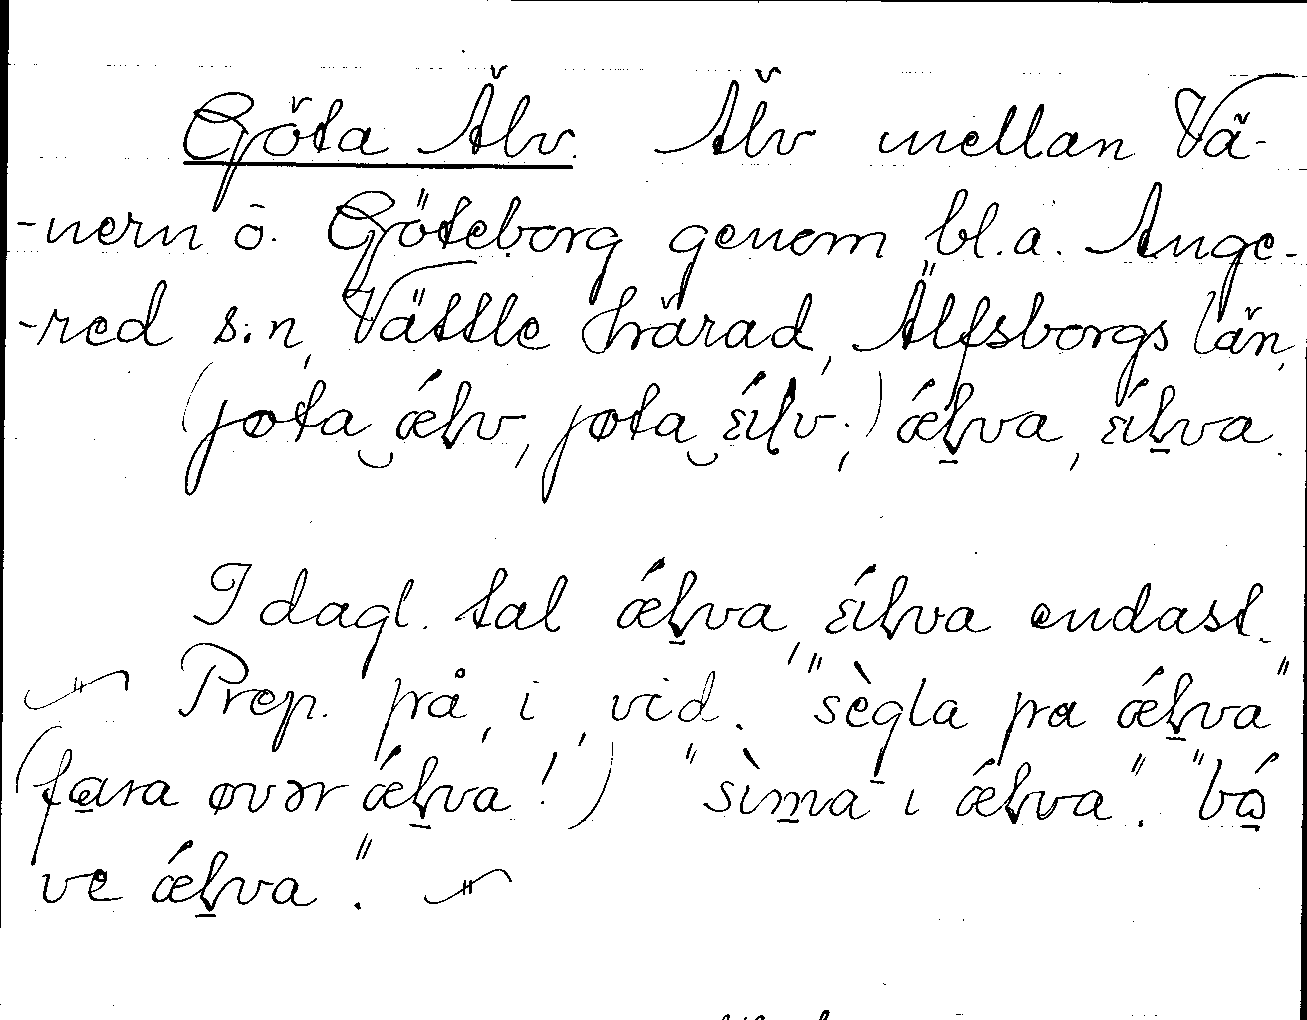 Göta Älv. Älv mellan Vä-
-nern o. Göteborg genom bl.a. Ange-
-red s:n, Vättle härad, Älfsborgs län,
(jøta ‿ ǽlv, jøta ‿ ɛ́ılv;) ǽlva, ɛ́ılva.
I dagl. tal ǽlva, ɛ́ılva endast.
Prep. på, i, vid. "sègla pa ǽlva"
(fara øvər ǽlva!) "sìma ı ǽlva". "bó
ve ǽlva".